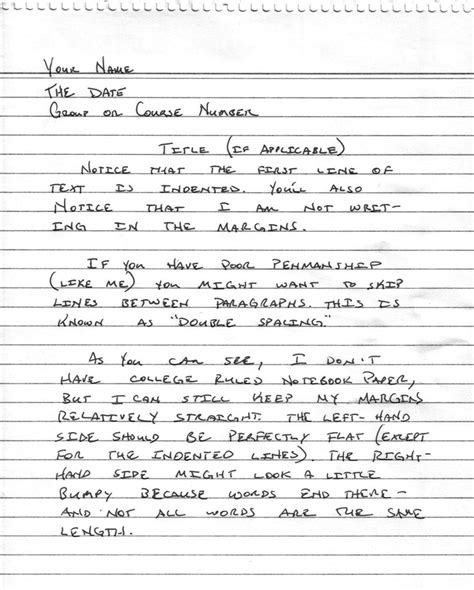 Your Name
The Date
Group or Course Number
Title (if applicable)
Notice that the first line of
text is indented. You'll also
notice that I am not writ-
ing in the margins.
If you have poor penmanship
(like me) you might want to skip
lines between paragraphs. This is
known as "double spacing."
As you can see, I don't
have college ruled notebook paper,
but I can still keep my margins
relatively straight. The left-hand
side should be perfectly flat (except
for the indented lines). The right-
hand side might look a little
bumpy because words end there –
and not all words are the same
length.